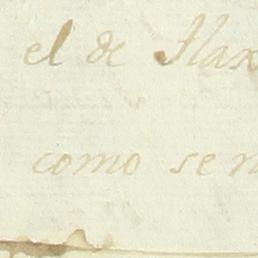 el de Tlax
como se